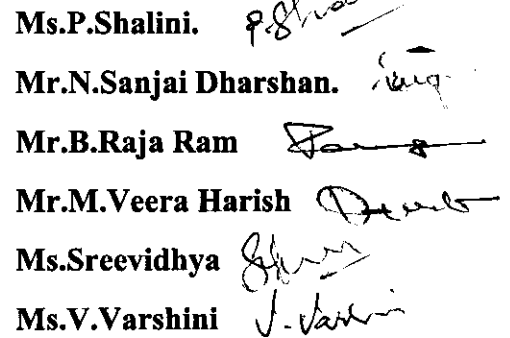 Ms.P.Shalini.
Mr.N.Sanjai Dharshan.
Mr.B.Raja Ram
Mr.M.Veera Harish
Ms.Sreevidhya
Ms.V.Varshini